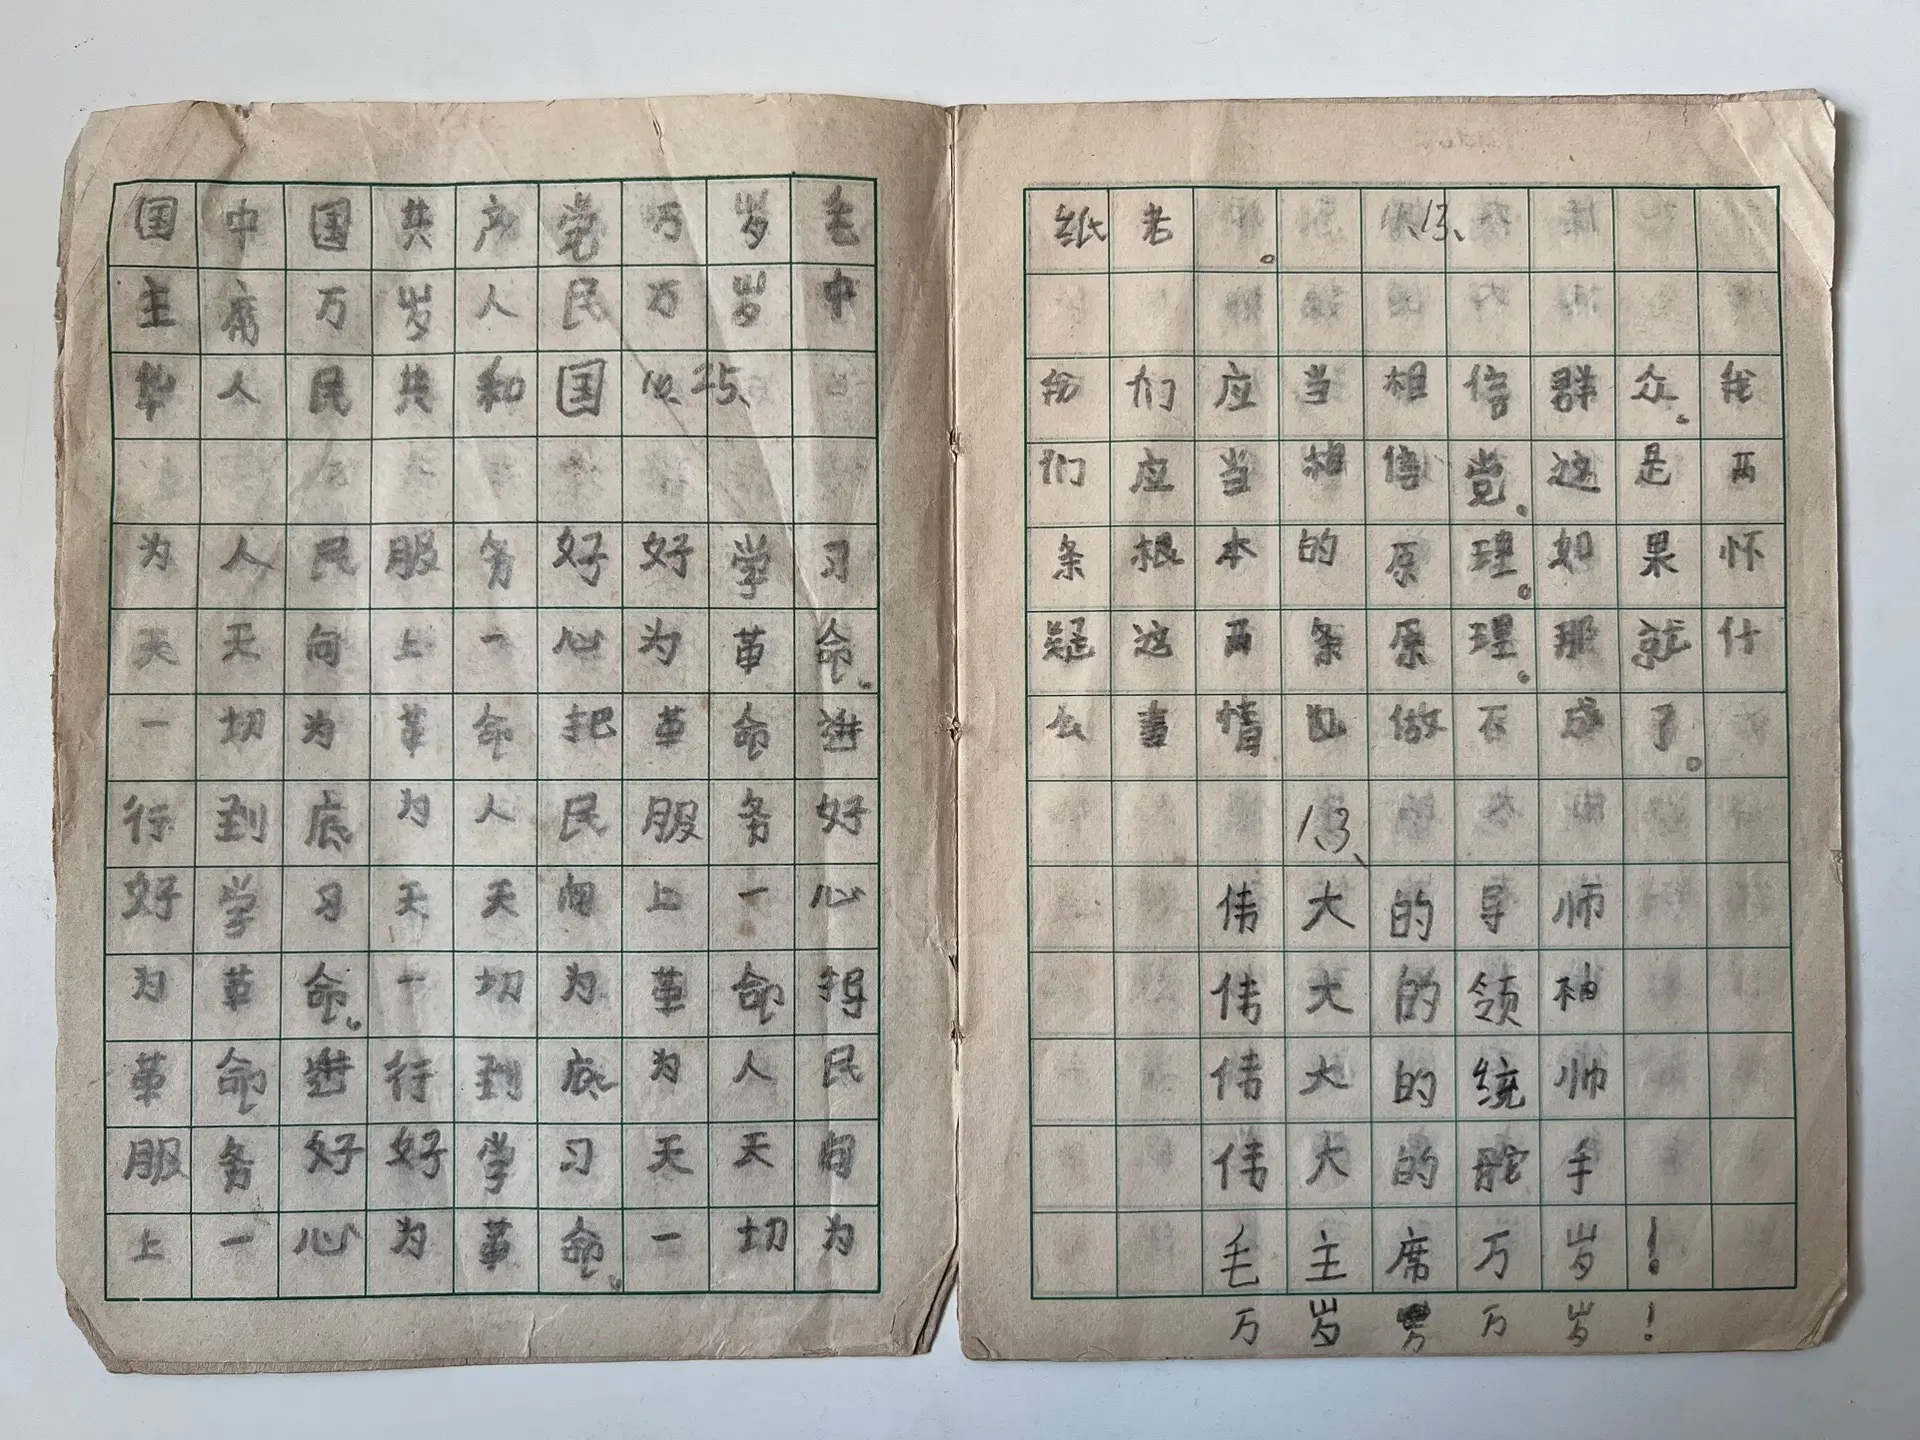 国中国共产党万岁毛
主席万岁人民万岁中
华人民共和国10.25、
为人民服务好好学习
天天向上一心为革命。
一切为革命把革命进
行到底为人民服务好
好学习天天向上一心
为革命。一切为革命得
革命进行到底为人民
服务好好学习天天向
上一心为革命。一切为
纸老。1.13、
我们应当相信群众。我
们应当相信党。这是两
条根本的原理。如果怀
疑这两条原理。那就什
么事情也做不成了。
1.3、
伟大的导师
伟大的领袖
伟大的统帅
伟大的舵手
毛主席万岁！
万岁万岁！